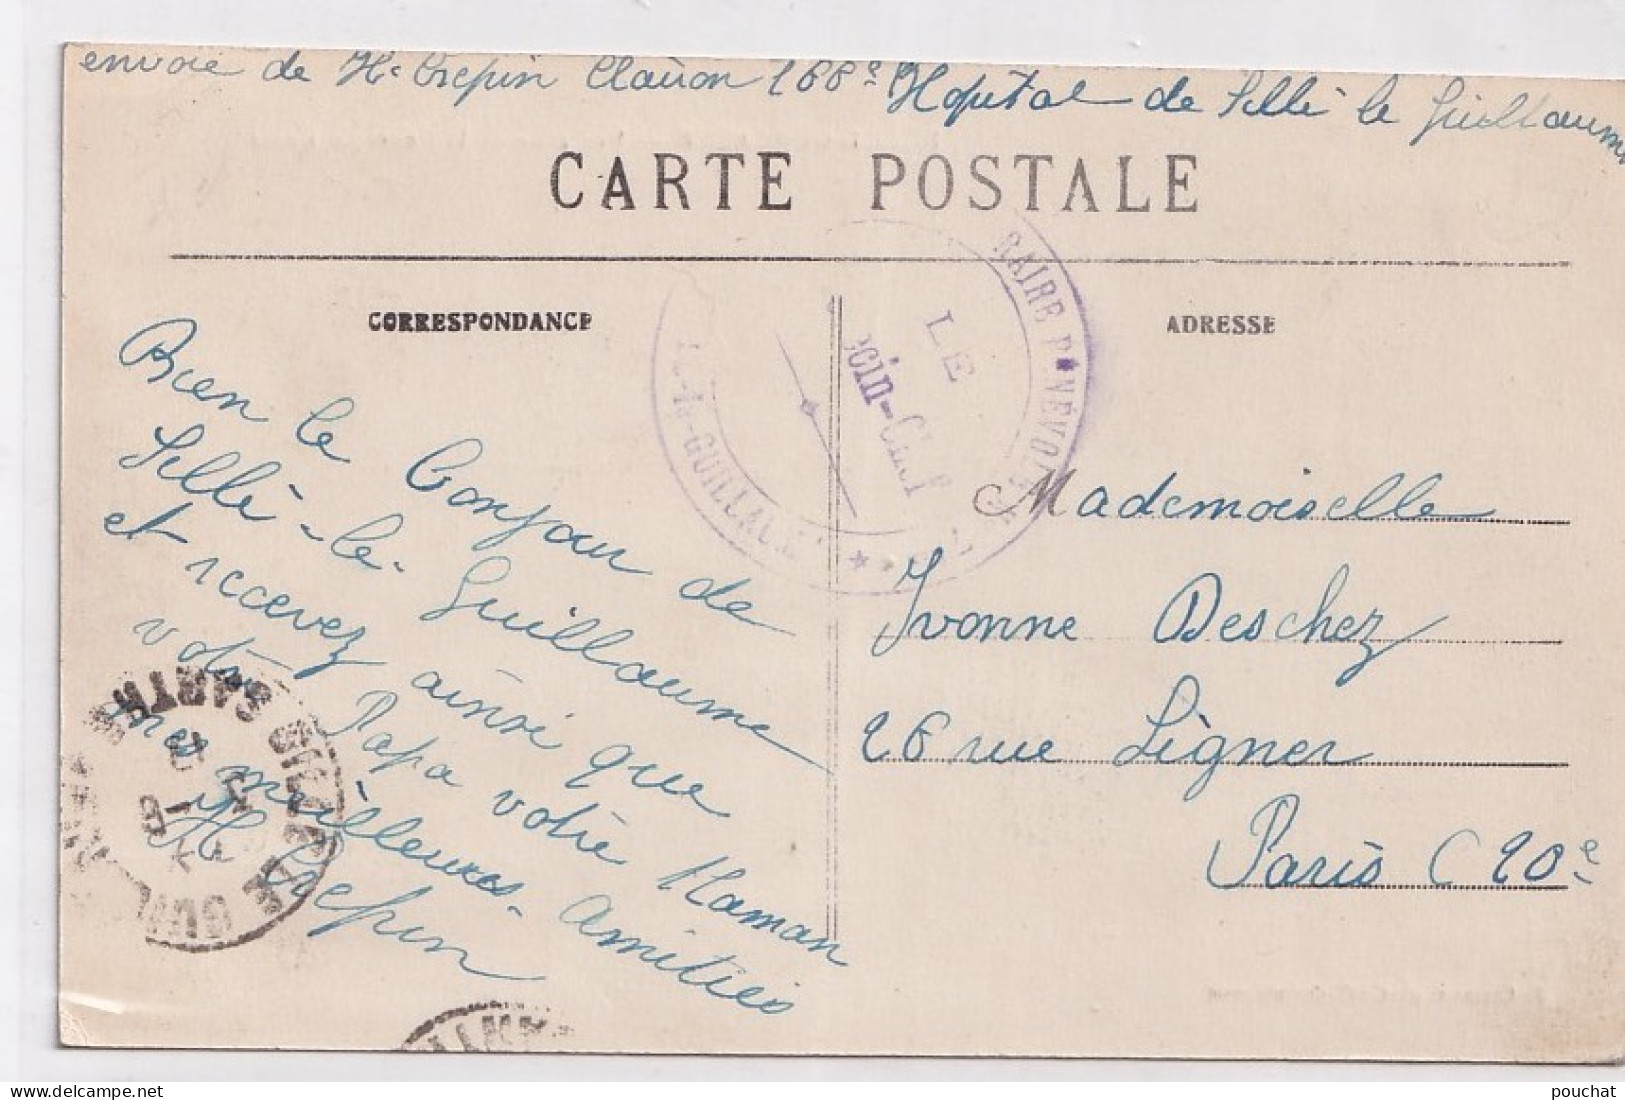 envoie de H. Crepin Clairon 166e Hopital de Sillé le Guillaume
CARTE POSTALE
CORRESPONDANCE
ADRESSE
Bien le Bonjour de
Sillé-le-Guillaume
et recevez ainsi que
votre Papa votre Maman
mes meilleures Amitiés
H Crepin
RAIRE BÉNÉVOLE
LE
ecin-Chef
LE-GUILLAUME
Mademoiselle
Yvonne Deschez
26 rue Ligner
Paris (20e
SILLE LE GUIL
SARTHE
pouchat